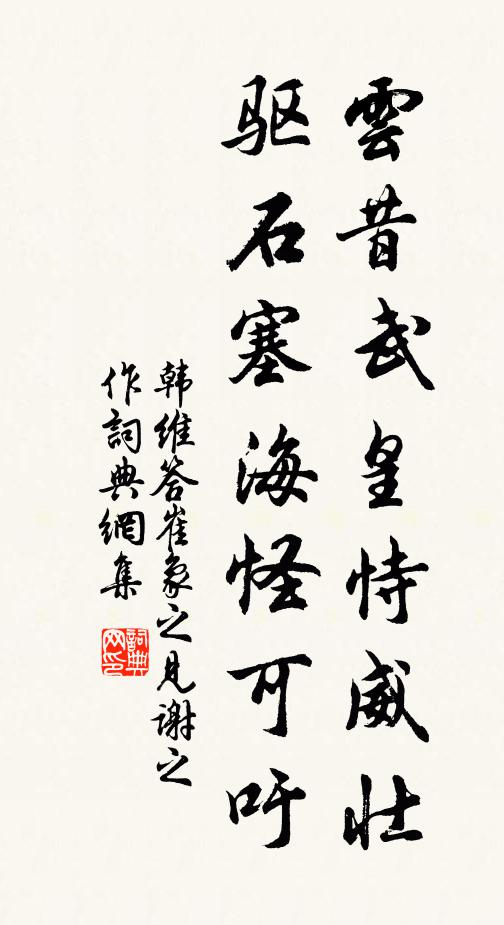 雲昔武皇恃威壮
驱石塞海怪可吁
韩维答崔象之见谢之
作詞典網集
詞典网印